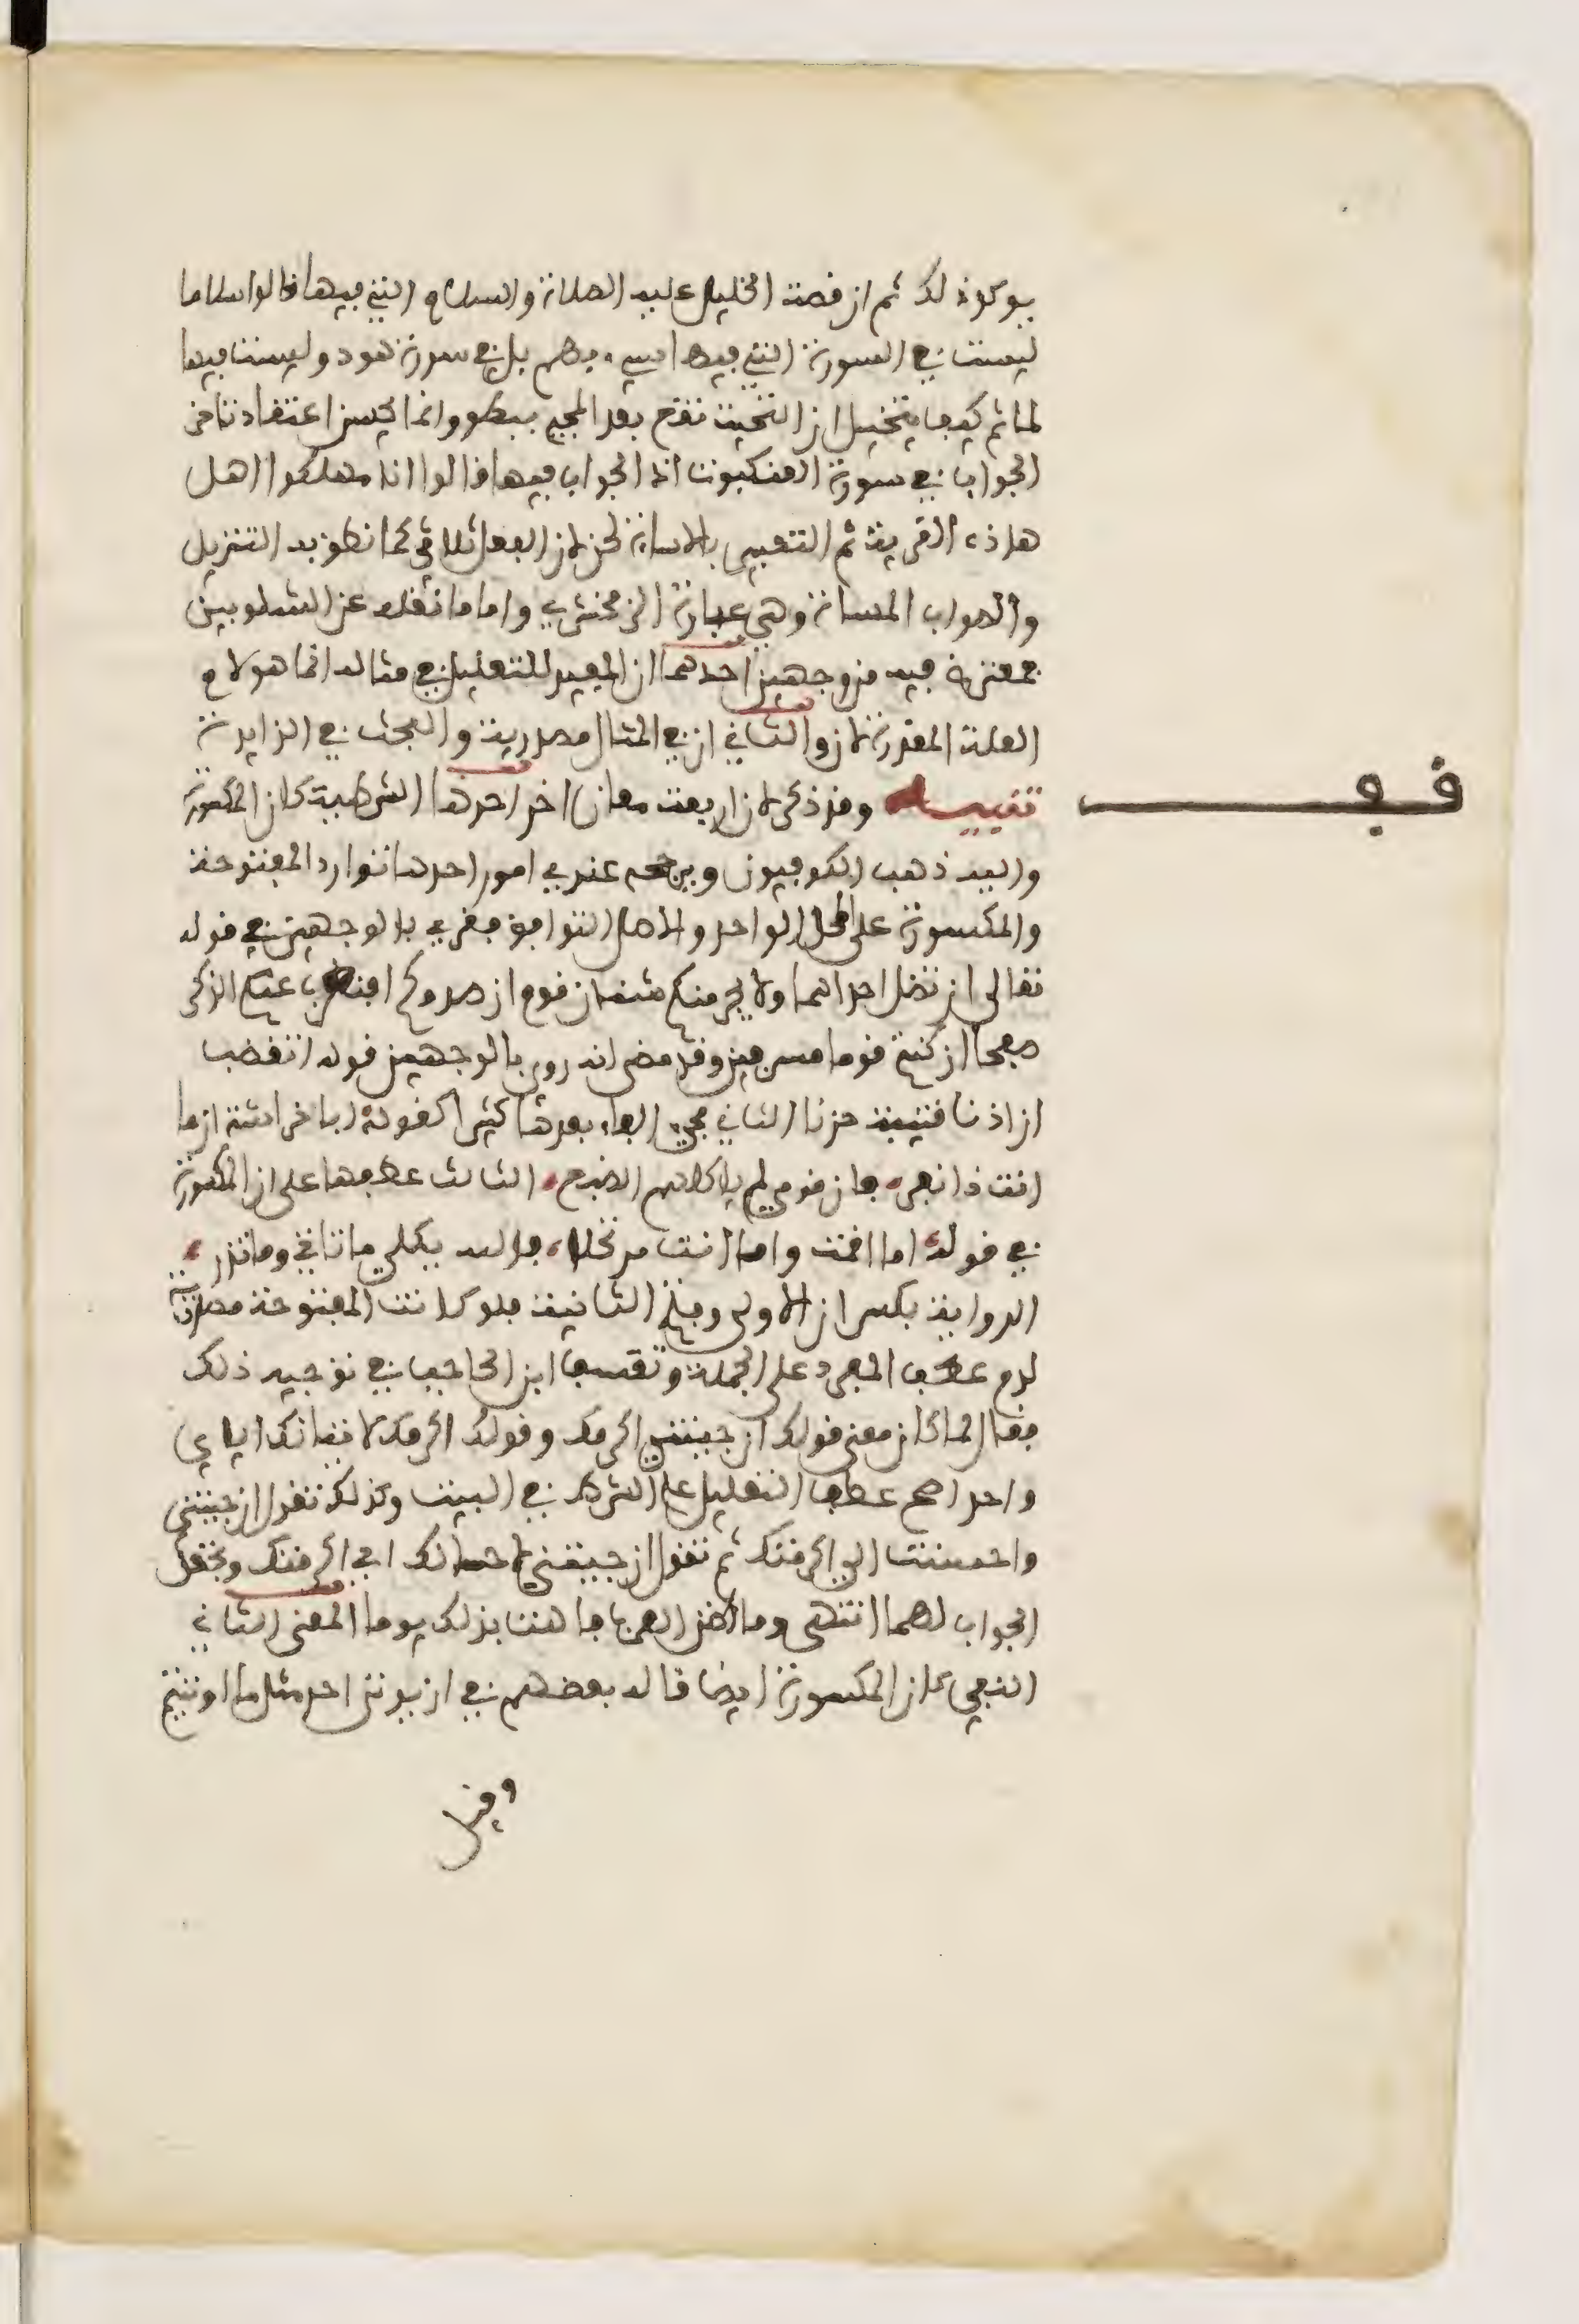 يوكد ذلك ثم ان قصة الخليل عليه الصلاة والسلام التي فيها قالوا سلاما
ليست في السورة التي فيها سيء بهم بل في سورة هود وليست فيها
لما ثم كيف يتخيل ان التحية تقع بعد المجيء ببطء وانما يحسن اعتقاد تاخر
الجواب في سورة العنكبوت اذ الجواب فيها قالوا انا مهلكوا اهل
هاذه القرية ثم التعبير بالاساءة لحن لان الفعل ثلاثي كما نطق به التنزيل
والصواب المساءة وهي عبارة الزمخشري واما ما نقله عن الشلوبين
فمعترض فيه من وجهين احدهما ان المفيد للتعليل في مثاله انما هو لام
العلة المقدرة لان والثاني ان في المثال مصدرية والبحث في الزايدة
تنبيه وقد ذكر لان اربعة معان اخر احدها الشرطية كان المكسورة
واليه ذهب الكوفيون ويرجحه عندي امور احدها توارد المفتوحة
والمكسورة على المحل الواحد والاصل التوافق فقرئ بالوجهين في قوله
تعالى ان تضل احداهما ولا يجرمنكم شنئان قوم ان صدوكم افنضرب عنكم الذكر
صفحا ان كنتم قوما مسرفين وقد مضى انه روي بالوجهين قوله اتغضب
ان اذنا قتيبة حزتا الثاني مجيء الفاء بعدها كثيرا كقوله ابا خراشة اما
انت ذا نفر فان قومي لم تاكلهم الضبع الثالث عطفها على ان المكسورة
في قوله اما اقمت واما انت مرتحلا فالله يكلي ما تاتي وما تذر
الرواية بكسر ان الاولى وفتح الثانية فلو كانت المفتوحة مصدرية
لزم عطف المفرد على الجملة وتعسف ابن الحاجب في توجيه ذلك
فقال لما كان معنى قولك ان جيتني اكرمك وقولك اكرمك لاتيانك اياي
واحد اصح عطف التعليل على الشرط في البيت وكذلك تقول ان جيتني
واحسنت الي اكرمتك ثم تقول ان جيتني لاحسانك الي اكرمتك وتجعل
الجواب لهما انتهى وما اظن العرب فاهت بذلك يوما المعنى الثاني
النفي كان المكسورة ايضا قاله بعضهم في ان يوتى احد مثل ما اوتيتم
وقيل
قف